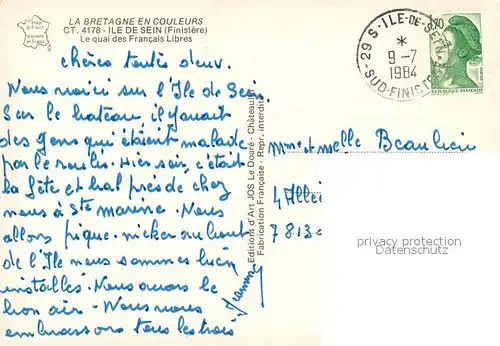 LA BRETAGNE EN COULEURS
CT. 4178 - ILE DE SEIN (Finistère)
Le quai des Français Libres
chères toutes deux.
Nous voici sur l'Ile de Sein
Sur le bateau, il y avait
des gens qui étaient malade
par le roulis. Hier soir, c'était
la fête et bal près de chez
nous à Ste marine. Nous
allons pique-nicker au bout
de l'Ile nous sommes bien
installés. Nous avons le
bon air - Nous vous
embrassons tous les trois
Editions d'Art JOS Le Doaré - Châteaulin
Fabrication Française - Repr. interdite
29 S-ILE-DE-SEIN
*
9-7
1984
SUD-FINISTERE
REPUBLIQUE FRANCAISE
Mme et Melle Beaulieu
4 Allée
7813
privacy protection
Datenschutz